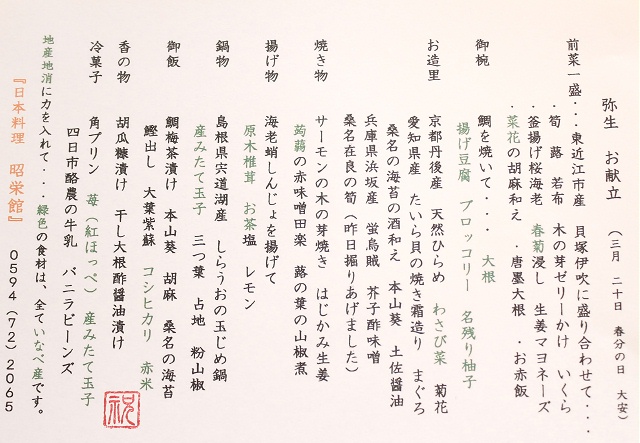 弥生　お献立　（三月　二十日　春分の日　大安）
前菜一盛・・・東近江市産　貝塚伊吹に盛り合わせて・・・・
・筍　蕗　若布　木の芽ゼリーかけ　いくら
・釜揚げ桜海老　春菊浸し　生姜マヨネーズ
・菜花の胡麻和え　・唐墨大根　・お赤飯
御椀　鯛を焼いて・・・・　大根
揚げ豆腐　ブロッコリー　名残り柚子
お造里　京都丹後産　天然ひらめ　わさび菜　菊花
愛知県産　たいら貝の焼き霜造り　まぐろ
桑名の海苔の酒和え　本山葵　土佐醤油
兵庫県浜坂産　蛍烏賊　芥子酢味噌
桑名在良の筍（昨日掘りあげました）
焼き物　サーモンの木の芽焼き　はじかみ生姜
蒟蒻の赤味噌田楽　蕗の葉の山椒煮
揚げ物　海老蛸しんじょを揚げて
原木椎茸　お茶塩　レモン
鍋物　島根県宍道湖産　しらうおの玉じめ鍋
産みたて玉子　三つ葉　占地　粉山椒
御飯　鯛梅茶漬け　本山葵　胡麻　桑名の海苔
鰹出し　大葉紫蘇　コシヒカリ　赤米
香の物　胡瓜糠漬け　干し大根酢醤油漬け
冷菓子　角プリン　苺（紅ほっぺ）　産みたて玉子
四日市酪農の牛乳　バニラビーンズ
地産地消に力を入れて・・・緑色の食材は、全ていなべ産です。
『日本料理　昭栄館』　０５９４（７２）２０６５
祝